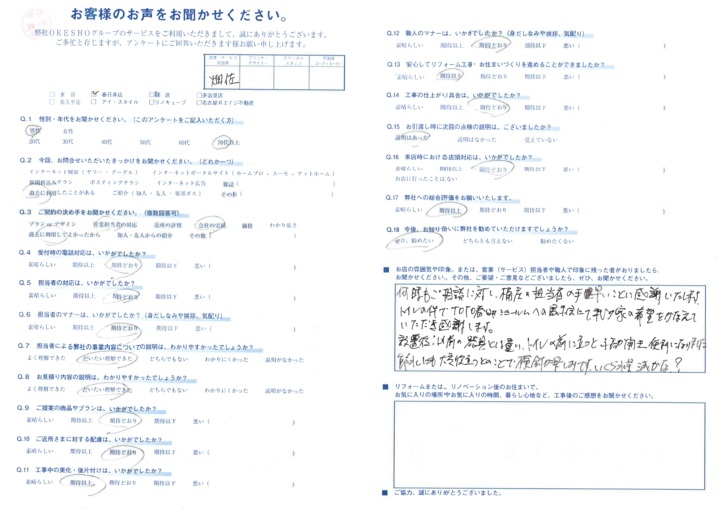 お客様のお声をお聞かせください。
弊社OKESHOグループのサービスをご利用いただきまして、誠にありがとうございます。
ご多忙と存じますが、アンケートにご回答いただきます様お願い申し上げます。
畑佐
本店 春日井店 多治見店
長久手店 アイ・スタイル リノキューブ 名古屋エイジ不動産
Q.1 性別・年代をお聞かせください。（このアンケートをご記入いただく方）
男性 女性
20代 30代 40代 50代 60代 70代以上
Q.2 今回、お問合せいただいたきっかけをお聞かせください。（どれか一つ）
インターネット検索（ヤフー・グーグル） インターネットポータルサイト（ホームプロ・スーモ・アットホーム）
新聞折込みチラシ ポスティングチラシ インターネット広告 雑誌（ ）
過去に利用したことがある ご紹介（知人・友人・東邦ガス） その他（ ）
Q.3 ご契約の決め手をお聞かせください。（複数回答可）
プラン or デザイン 営業担当者の対応 近所の評価 会社の実績 価格 わかり良さ
過去に利用してよかったから 知人・友人からの紹介 その他（ ）
Q.4 受付時の電話対応は、いかがでしたか？
素晴らしい 期待以上 期待どおり 期待以下 悪い（ ）
Q.5 担当者の対応は、いかがでしたか？
素晴らしい 期待以上 期待どおり 期待以下 悪い（ ）
Q.6 担当者のマナーは、いかがでしたか？（身だしなみや挨拶、気配り）
素晴らしい 期待以上 期待どおり 期待以下 悪い（ ）
Q.7 担当者による弊社の事業内容についての説明は、わかりやすかったでしょうか？
よく理解できた だいたい理解できた どちらでもない わかりにくかった 説明がなかった
Q.8 お見積り内容の説明は、わかりやすかったでしょうか？
よく理解できた だいたい理解できた どちらでもない わかりにくかった 説明がなかった
Q.9 ご提案の商品やプランは、いかがでしたか？
素晴らしい 期待以上 期待どおり 期待以下 悪い（ ）
Q.10 ご近所さまに対する配慮は、いかがでしたか？
素晴らしい 期待以上 期待どおり 期待以下 悪い（ ）
Q.11 工事中の美化・後片付けは、いかがでしたか？
素晴らしい 期待以上 期待どおり 期待以下 悪い（ ）
Q.12 職人のマナーは、いかがでしたか？（身だしなみや挨拶、気配り）
素晴らしい 期待以上 期待どおり 期待以下 悪い（ ）
Q.13 安心してリフォーム工事・お住まいづくりを進めることができましたか？
素晴らしい 期待以上 期待どおり 期待以下 悪い（ ）
Q.14 工事の仕上がり具合は、いかがでしたか？
素晴らしい 期待以上 期待どおり 期待以下 悪い（ ）
Q.15 お引渡し時に次回の点検の説明は、ございましたか？
説明はあった 説明はなかった 覚えていない
Q.16 来店時における店頭対応は、いかがでしたか？
素晴らしい 期待以上 期待どおり 期待以下 悪い（ ）
お店に行ったことはない
Q.17 弊社への総合評価をお願いいたします。
素晴らしい 期待以上 期待どおり 期待以下 悪い（ ）
Q.18 今後、お知り合いに弊社を勧めていただけますでしょうか？
ぜひ、勧めたい どちらとも言えない 勧めたくない
■ お店の雰囲気や印象、または、営業（サービス）担当者や職人で印象に残った者がおりましたら、
お聞かせください。その他、ご要望・ご意見などございましたら、ぜひ、お聞かせください。
何時もご相談に対し、桶庄の担当者の手早いことに感謝いたします
トイレの件で TOTO春日井ショールームへの見学にて我が家の希望をかなえて
いただき感謝します。
■ リフォームまたは、リノベーション後のお住まいで、
お気に入りの場所やお気に入りの時間、暮らし心地など、工事後のご感想をお聞かせください。
■ ご協力、誠にありがとうございました。